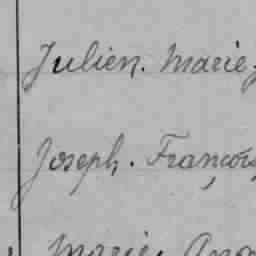 Julien. Marie,
Joseph. François,
Marie. Ang